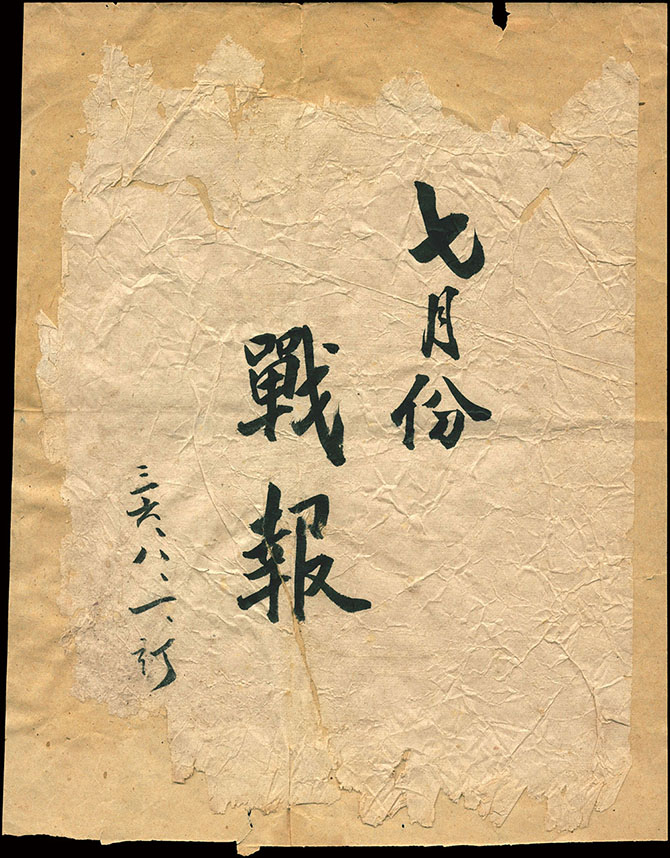 七月份
戰報
三六、八、一、訂